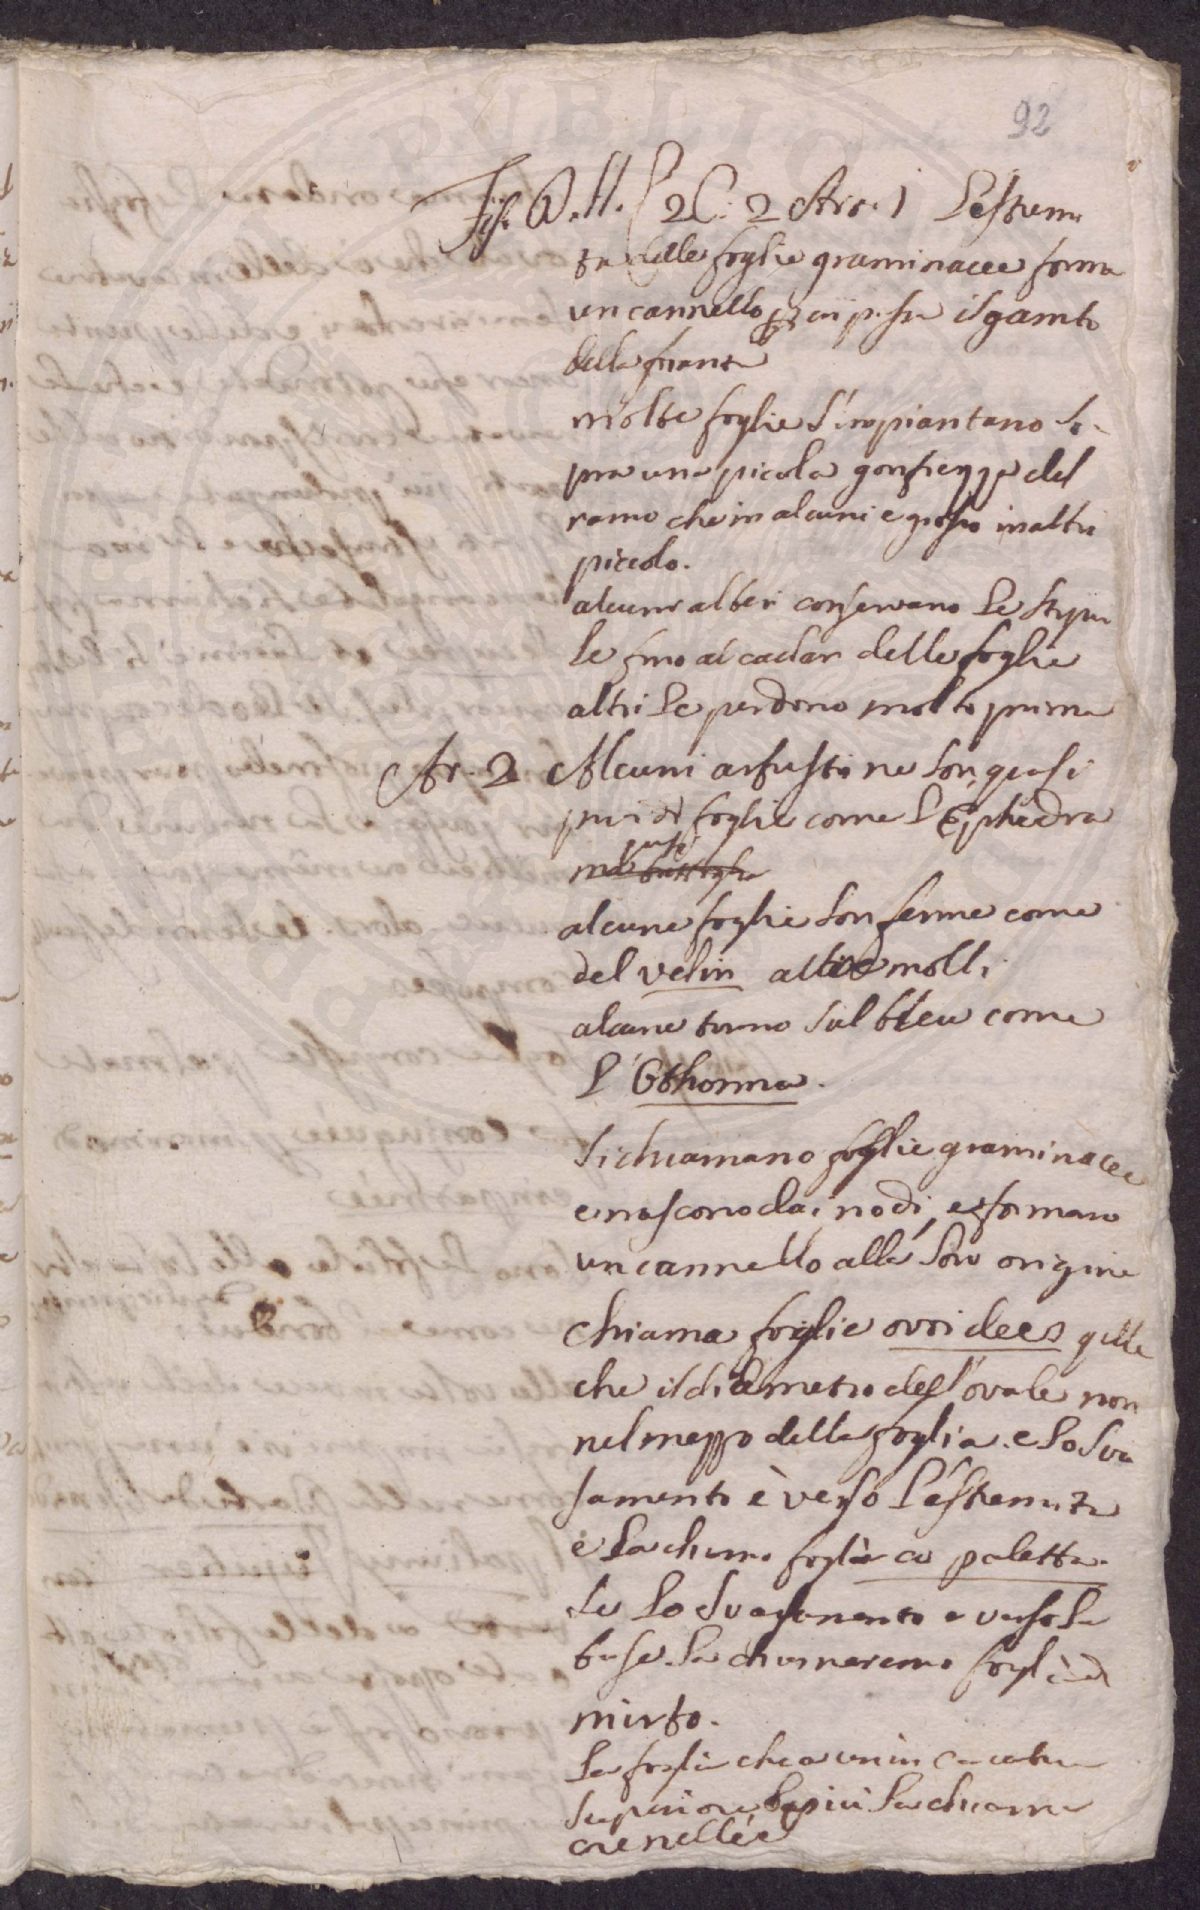 92
Fis. d. A. (2 C. 2 Art. 1 L'estremi
ta delle foglie graminacee forma
un cannello p cui passa il gambo
della pianta
molte foglie s'inpiantano so-
pra una picola gonfiezza del
ramo che in alcuni e grosso in altri
piccolo.
alcuni alberi conservano le stipu
le fino al cader delle foglie
altri le perdono molto prima
Ar. 2 Alcuni arfusti ne son quasi
privi di foglie come l'Ephedra
alcune foglie son ferme come
del velin altre molli
alcune tirano sul bleu come
l'Othonna.
si chiamano foglie graminacee
e nascono dai nodi, e formano
un cannello alla loro origine
chiama foglie ovoidees qlle
che il diametro dell'ovale non
nel mezzo della foglia. e lo sva
samento è verso l'estremità
e la chiama foglia a paletta.
se lo svasamento e verso la
base la chiameremo foglia di
mirto.
la foglia che a un in
superiore la chiama
crenellèe
PVBLIC